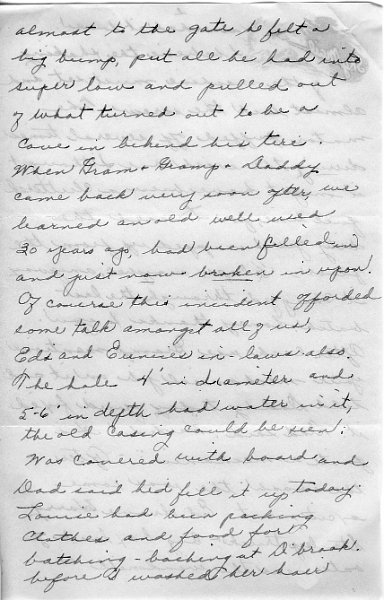 almost to the gate he felt a
big bump, put all he had into
super low and pulled out
of what turned out to be a
cave in behind his tire.
When Gram & Gramp & Daddy
came back very soon after, we
learned an old well used
30 years ago, had been filled in
and just now broken in upon.
Of course this incident afforded
some talk amongst all of us,
Ed's and Eunices in-laws also.
The hole 4' in diameter and
5-6' in depth had water in it,
the old casing could be seen.
Was covered with board and
Dad said he'd fill it up today.
Louise had been packing
clothes and food for
batching - baching at O'brook.
before I washed her hair